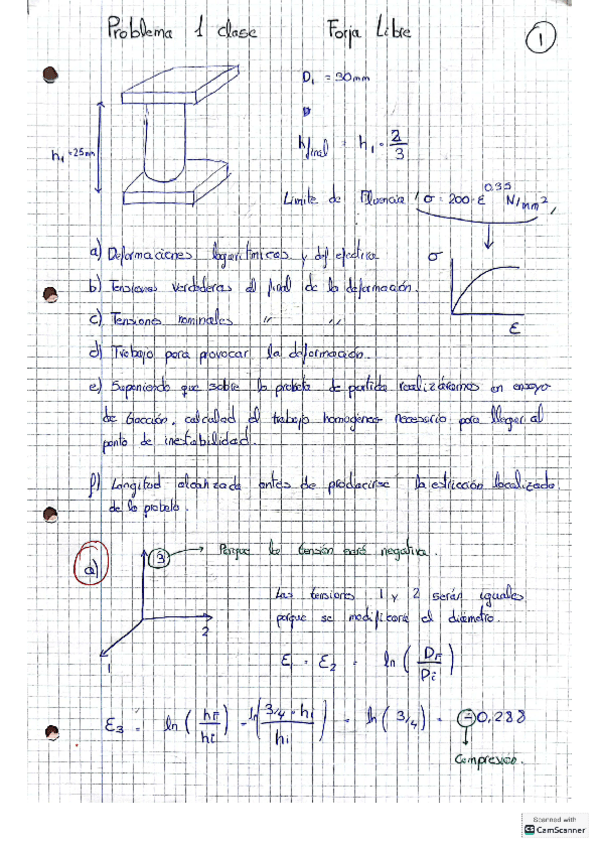 Problema 1 clase Forja Libre 1
D₁ = 30mm
h₁ = 25mm
hfinal = h₁ · 2/3
Limite de Fluencia / σ = 200 · ε^0.35 N/mm²,
a) Deformaciones logarítmicas y def efectiva
σ
b) Tensiones verdaderas al final de la deformación.
c) Tensiones nominales " "
ε
d) Trabajo para provocar la deformación.
e) Suponiendo que sobre la probeta de partida realizáramos en ensayo
de tracción, calculad el trabajo homogéneo necesario para llegar al
punto de inestabilidad.
f) Longitud alcanzada antes de producirse la estricción localizada
de la probeta.
a) 3 → Porque la tensión será negativa.
Las tensiones 1 y 2 serán iguales
porque se modificará el diámetro.
2
1
ε₁ = ε₂ = ln (DF/Di)
ε₃ = ln (hF/hi) = ln (3/4 · hi / hi) = ln (3/4) = -0,288
Compresión.
Scanned with
CS CamScanner